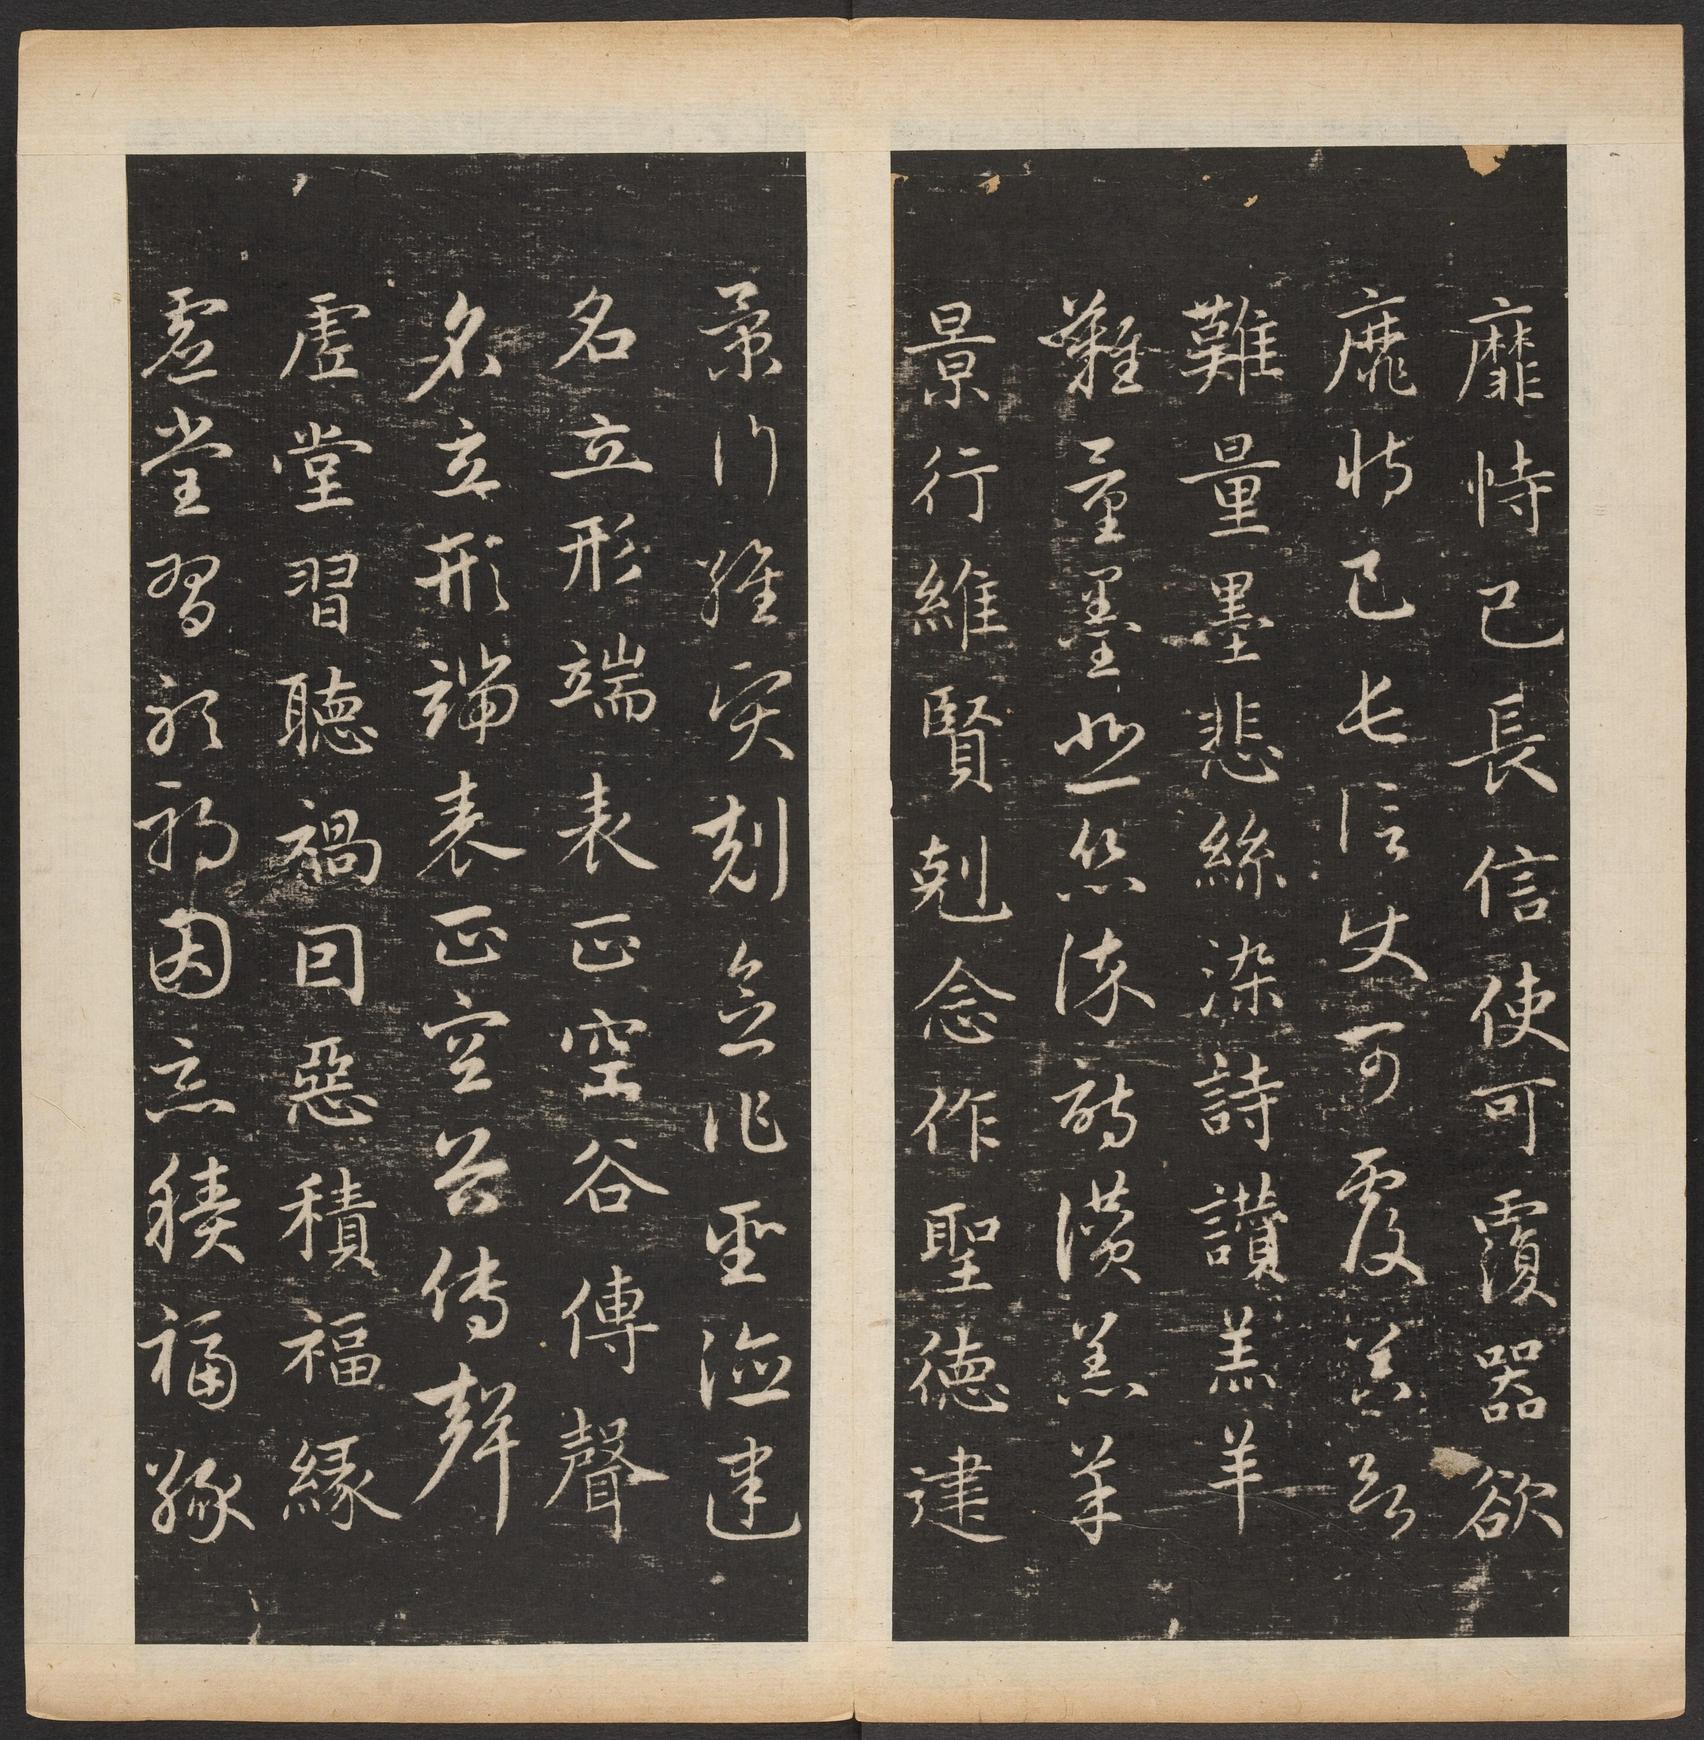 靡恃己長信使可覆器欲
靡恃己長信使可覆器欲
難量墨悲絲染詩讃羔羊
難量墨悲絲染詩讃羔羊
景行維賢剋念作聖徳建
景行維賢剋念作聖徳建
名立形端表正空谷傳聲
名立形端表正空谷傳聲
虛堂習聽禍因惡積福緣
虛堂習聽禍因惡積福緣